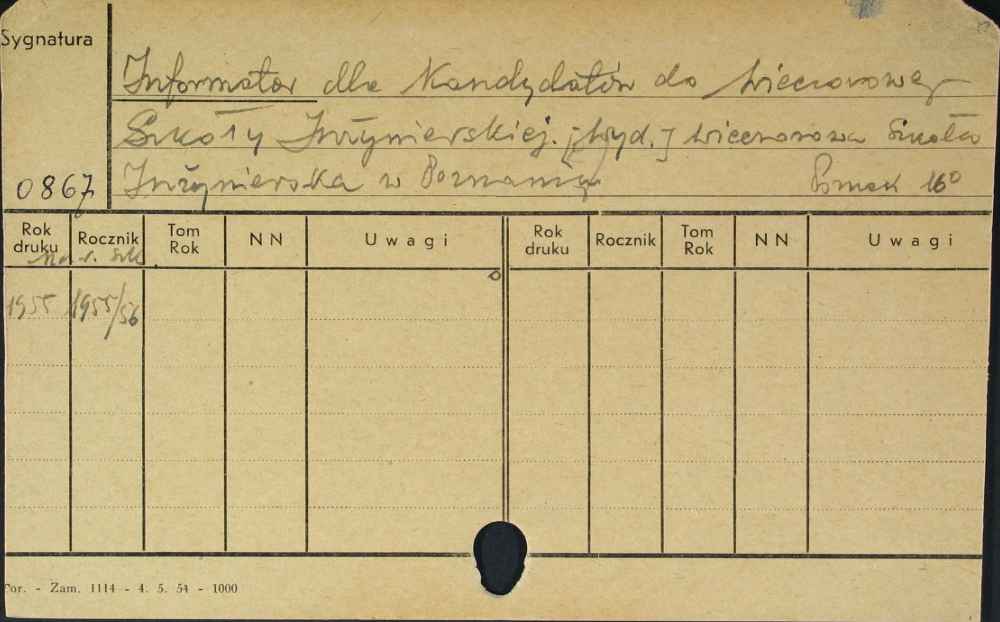 Sygnatura
Informator dla Kandydatów do Wieczorowej
Szkoły Inżynierskiej. [Wyd.] Wieczorowa Szkoła
0867 Inżynierska w Poznaniu 16°
Rok druku Rocznik Tom Rok NN Uwagi Rok druku Rocznik Tom Rok NN Uwagi
Na r. szk.
1955 1955/56
or. - Zam. 1114 - 4. 5. 54 - 1000